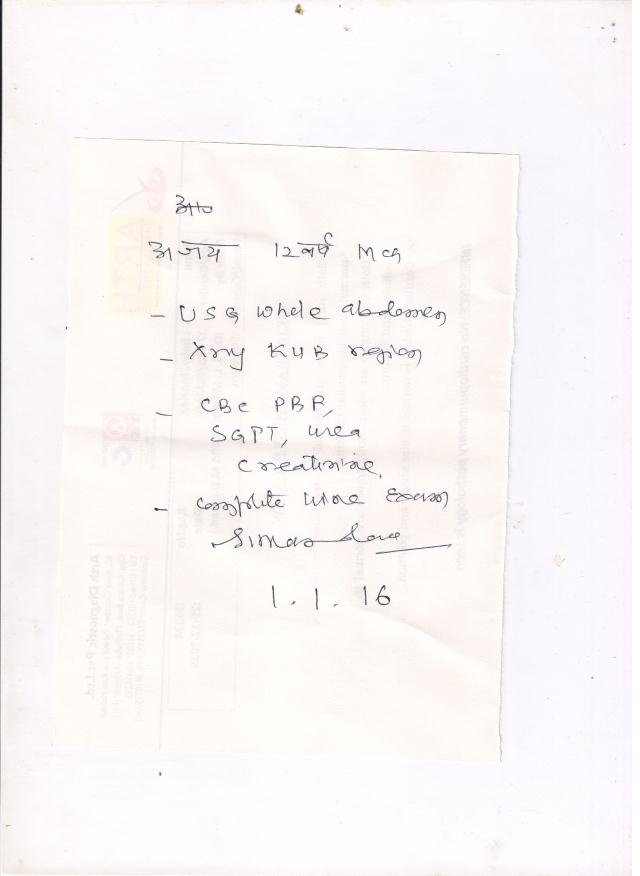 अजय 12 वर्ष Mch
- USG whole abdomen
- Xray KUB region
- CBC PBF,
SGPT, urea
creatinine,
- complete urine Exam
1.1.16